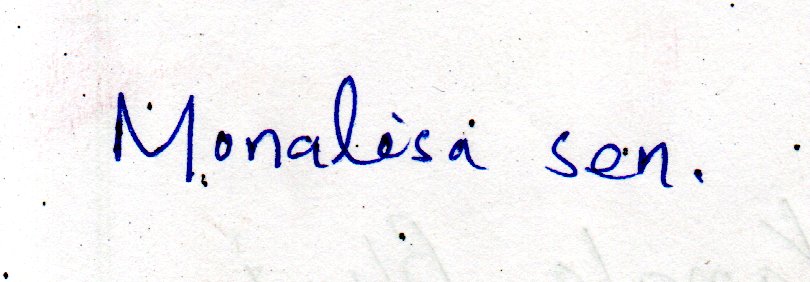 Monalisa sen.